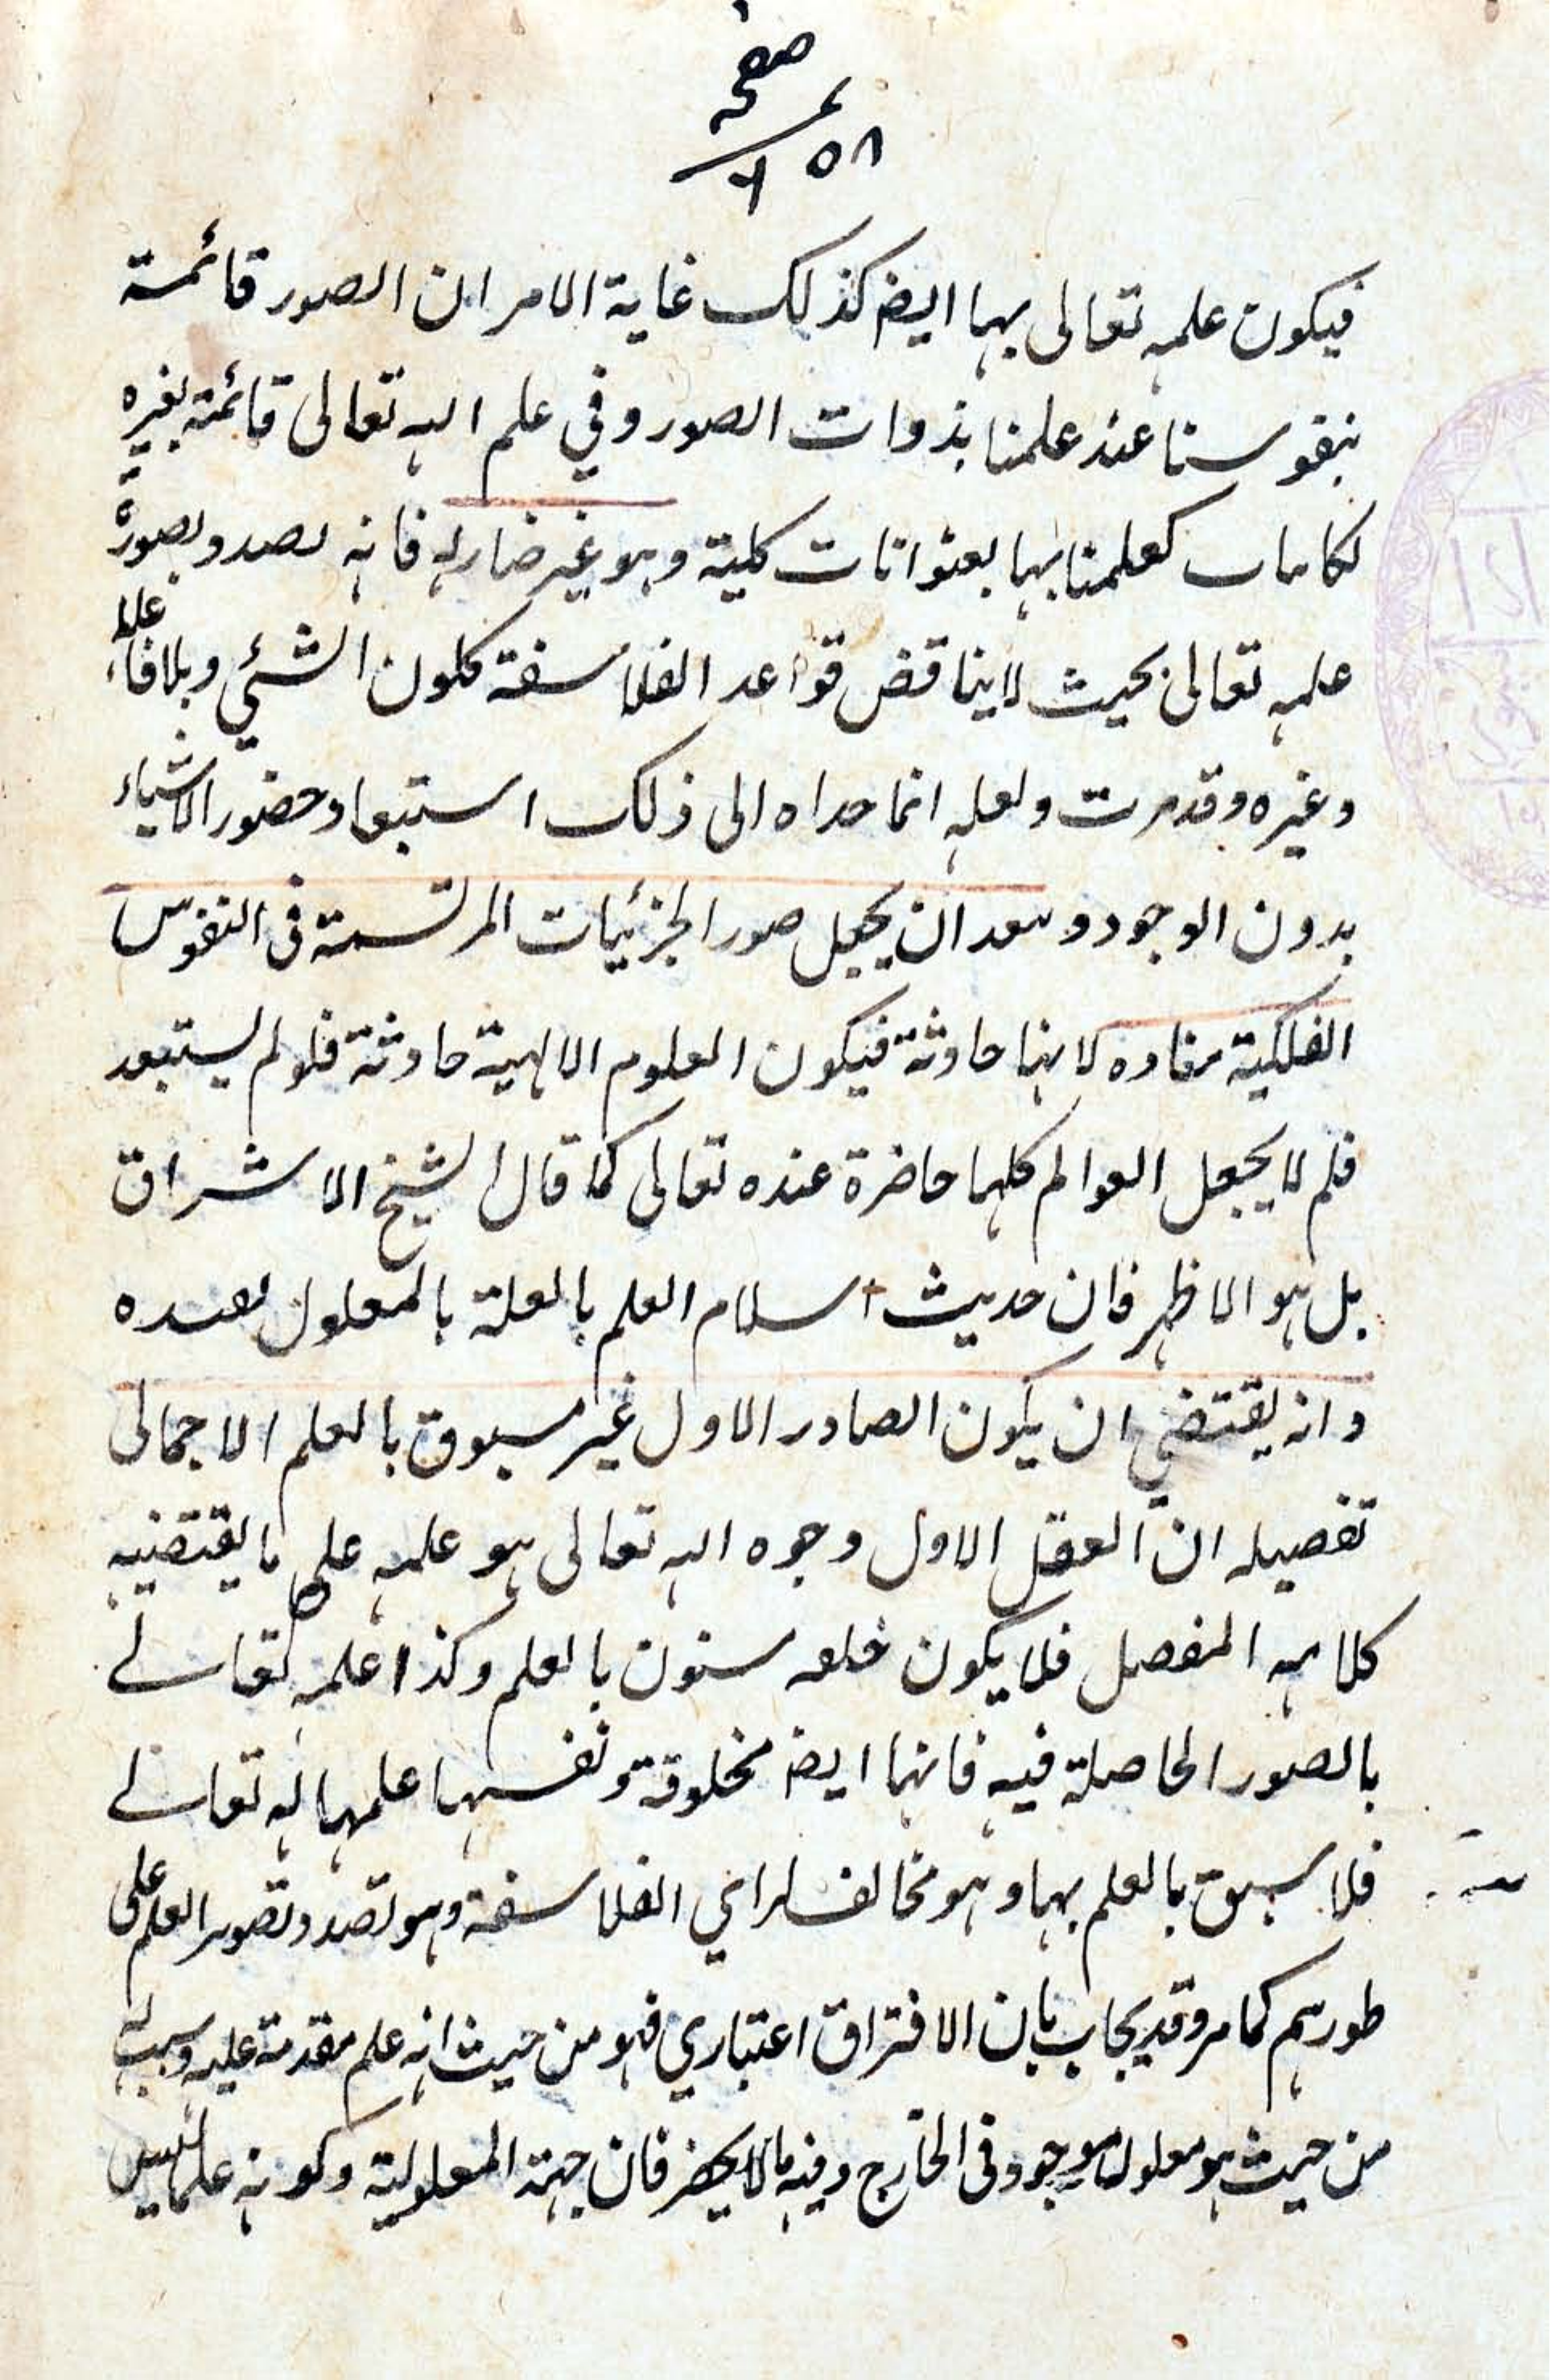 صفحہ
١٥٨
فيكون علمه تعالى بها ايض كذلك غاية الامر ان الصور قائمة
بنفوسنا عند علمنا بذوات الصور وفي علم الله تعالى قائمة بغيره
كعلمنا بها بعنوانات كلية وهو غير ضار له فانه بصدد بصورة
علمه تعالى بحيث لا يناقض قواعد الفلاسفة ككون الشئ
وغيره وقد مرت ولعله انما حداه الى ذلك استبعاد حضور الاشياء
بدون الوجود وبعد ان يجعل صور الجزئيات المرتسمة فى النفوس
الفلكية لانها حادثة فيكون العلوم الالهية حادثة فلو لم يستبعد
فلم لا يجعل العوالم كلها حاضرة عنده تعالى كما قال شيخ الاشراق
بل هو الاظهر فان حديث اسلام العلم بالعلة بالمعلول
وانه يقتضي ان يكون الصادر الاول غير مسبوق بالعلم الاجمالى
تفصيله ان العقل الاول وجوه الله تعالى هو علمه على ما يقتضيه
كلامه المفصل فلا يكون بالعلم وكذا علمه تعالے
بالصور الحاصلة فيه فانها ايض مخلوقة ونفسها علمها له تعالے
فلا سبق بالعلم بها وهو مخالف لراي الفلاسفة وهو بصدد تصوير العلم على
طورهم كما مر وقد يجاب بان الافتراق اعتباري فهو من حيث انه علم مقدمة عليه وسبب له
من حيث هو معلول موجود فى الخارج وفيه ما لا يخفى فان جهة المعلولية وكونه علما ليس